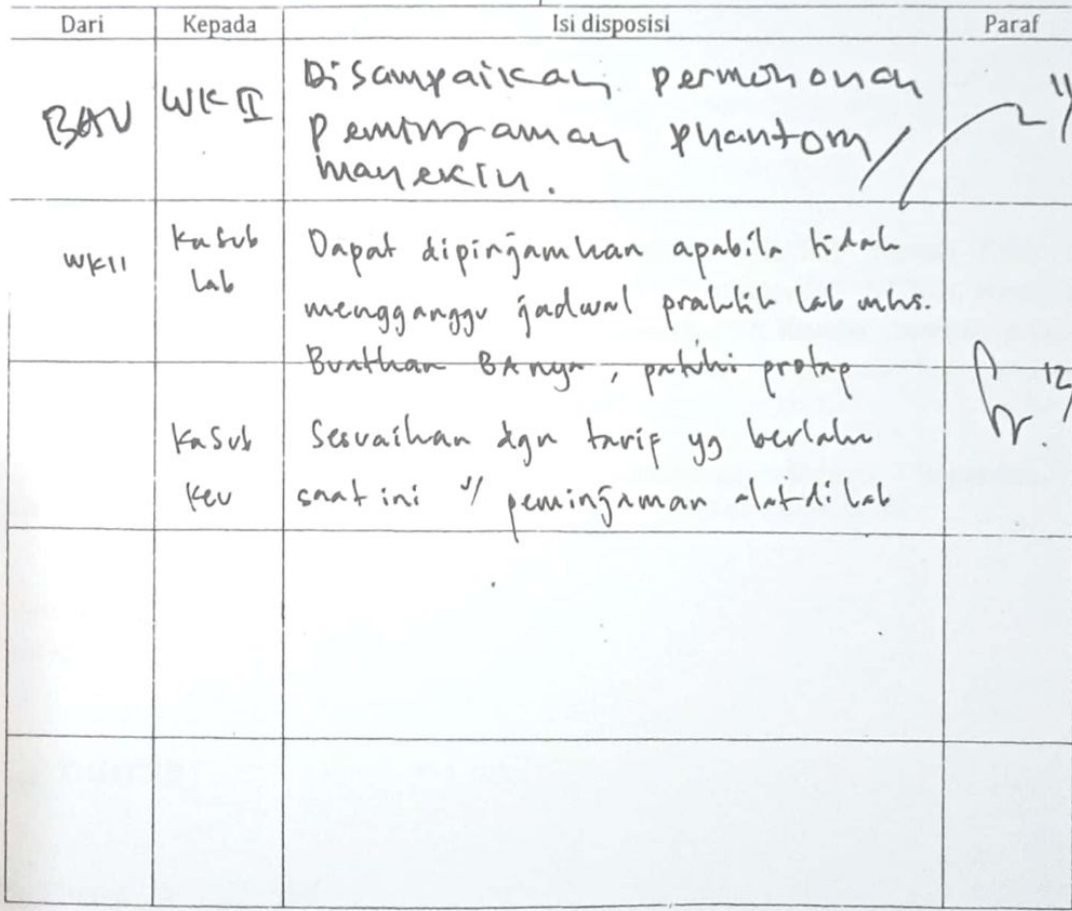 Dari Kepada Isi disposisi Paraf
BAU WK II Disampaikan permohonan
peminjaman phantom/
manekin.
11/
WKII Kasub Lab Dapat dipinjamkan apabila tidak
mengganggu jadwal praktik lab mhs.
Buatkan BAnya, patuhi protap
12/
Kasub Keu Sesuaikan dgn tarif yg berlaku
saat ini u/ peminjaman alat di lab